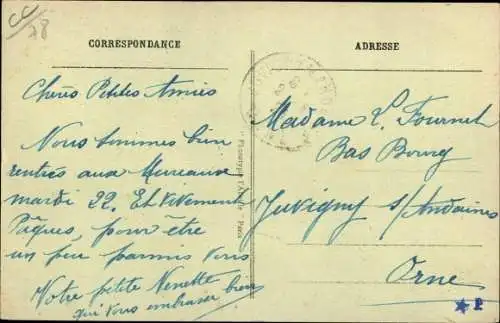 CC
78
CORRESPONDANCE
Chères Petites Amies
Nous sommes bien
rentrées aux Mureaux
mardi 22. Et vivement
Pâques, pour être
un peu parmis vous
Votre petite Nenette
qui vous embrasse bien
ADRESSE
Madame L. Fournet
Bas Bourg
Juvigny s/Andaines
Orne
P